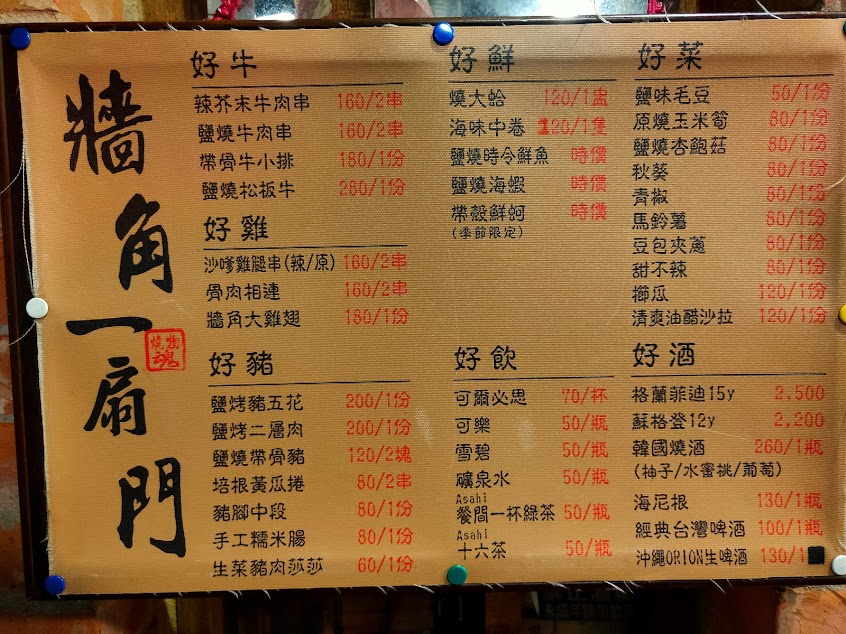 牆角一扇門
燒物
魂
好牛
辣芥末牛肉串 160/2串
鹽燒牛肉串 160/2串
帶骨牛小排 180/1份
鹽燒松板牛 280/1份
好雞
沙嗲雞腿串(辣/原) 160/2串
骨肉相連 160/2串
牆角大雞翅 180/1份
好豬
鹽烤豬五花 200/1份
鹽烤二層肉 200/1份
鹽燒帶骨豬 120/2塊
培根黃瓜捲 80/2串
豬腳中段 80/1份
手工糯米腸 80/1份
生菜豬肉莎莎 60/1份
好鮮
燒大蛤 120/1盅
海味中卷 120/1隻
鹽燒時令鮮魚 時價
鹽燒海蝦 時價
帶殼鮮蚵 時價
(季節限定)
好飲
可爾必思 70/杯
可樂 50/瓶
雪碧 50/瓶
礦泉水 50/瓶
Asahi
餐間一杯綠茶 50/瓶
Asahi
十六茶 50/瓶
好菜
鹽味毛豆 50/1份
原燒玉米筍 80/1份
鹽燒杏鮑菇 80/1份
秋葵 80/1份
青椒 80/1份
馬鈴薯 80/1份
豆包夾蔥 80/1份
甜不辣 80/1份
櫛瓜 120/1份
清爽油醋沙拉 120/1份
好酒
格蘭菲迪15y 2,500
蘇格登12y 2,200
韓國燒酒 260/1瓶
(柚子/水蜜桃/葡萄)
海尼根 130/1瓶
經典台灣啤酒 100/1瓶
沖繩ORION生啤酒 130/1